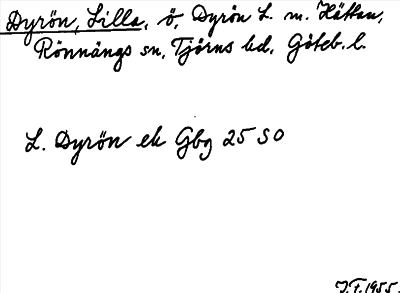 Dyrön, Lilla, ö, Dyrön L. m. Hättan,
Rönnängs sn, Tjörns hd, Göteb. l.
L. Dyrön ek Gbg 25 SO
J.F. 1955.